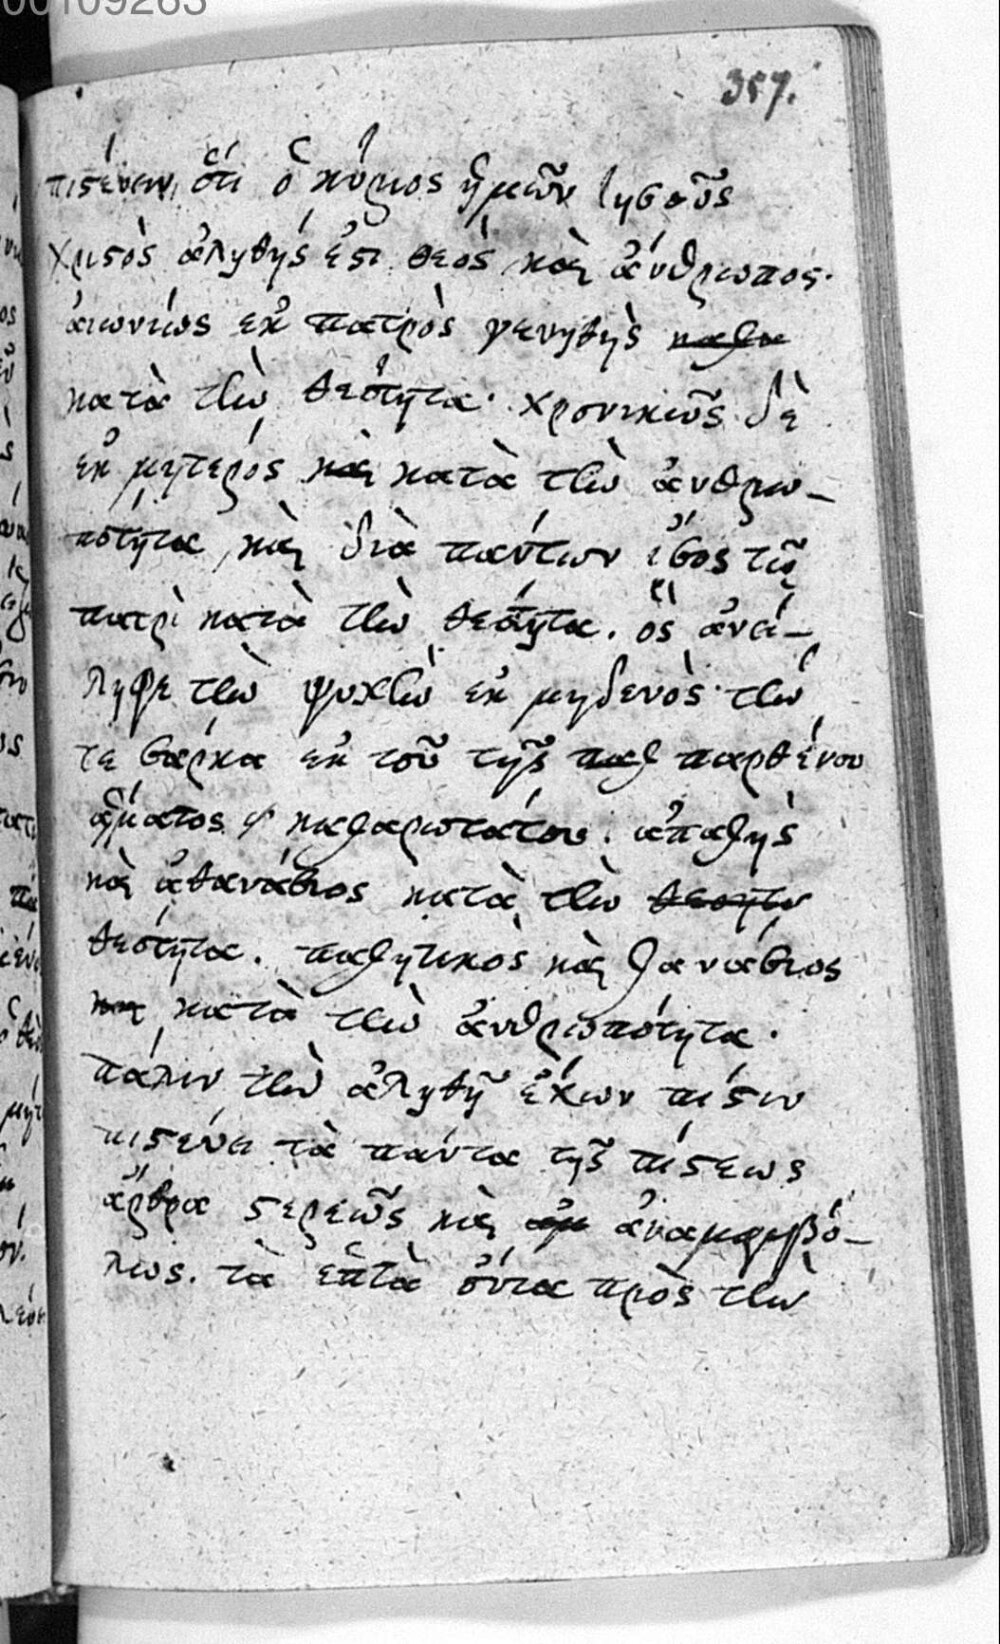 00109263
357.
πιστεύειν, ὅτι ὁ κύριος ἡμῶν Ἰησοῦς
χριστὸς ἀληθής ἐστι θεὸς καὶ ἄνθρωπος·
αἰωνίως ἐκ πατρὸς γενηθεὶς καθα
κατὰ τὴν θεότητα· χρονικῶς δὲ
ἐκ μητερός καὶ κατὰ τὴν ἀνθρω-
πότητα, καὶ διὰ πάντων ἴσος τῷ
πατρὶ κατὰ τὴν θεότητα. ὃς ἀνεί-
ληφε τὴν ψυχὴν ἐκ μηδενὸς· τὴν
τε σάρκα ἐκ τοῦ τῆς παθ παρθένου
αἵματος καθαρωτάτου. ἀπαθὴς
καὶ ἀθανάσιος κατὰ τὴν θεοητα
θεότητα. παθητικὸς καὶ θανάσιος
και κατὰ τὴν ἀνθρωπότητα.
πάλιν τὴν ἀληθῆ ἔχων πίστιν
πιστεύει τὰ πάντα τῆς πίστεως
ἄρθρα στερεῶς καὶ ἀναμφιβό-
λως. τὰ ἑπτὰ ὄντα πρὸς τὴν